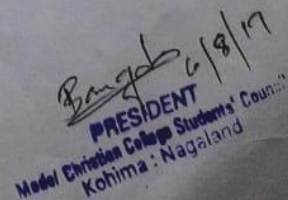 6/8/17
PRESIDENT
Model Christian College Students' Council
Kohima : Nagaland